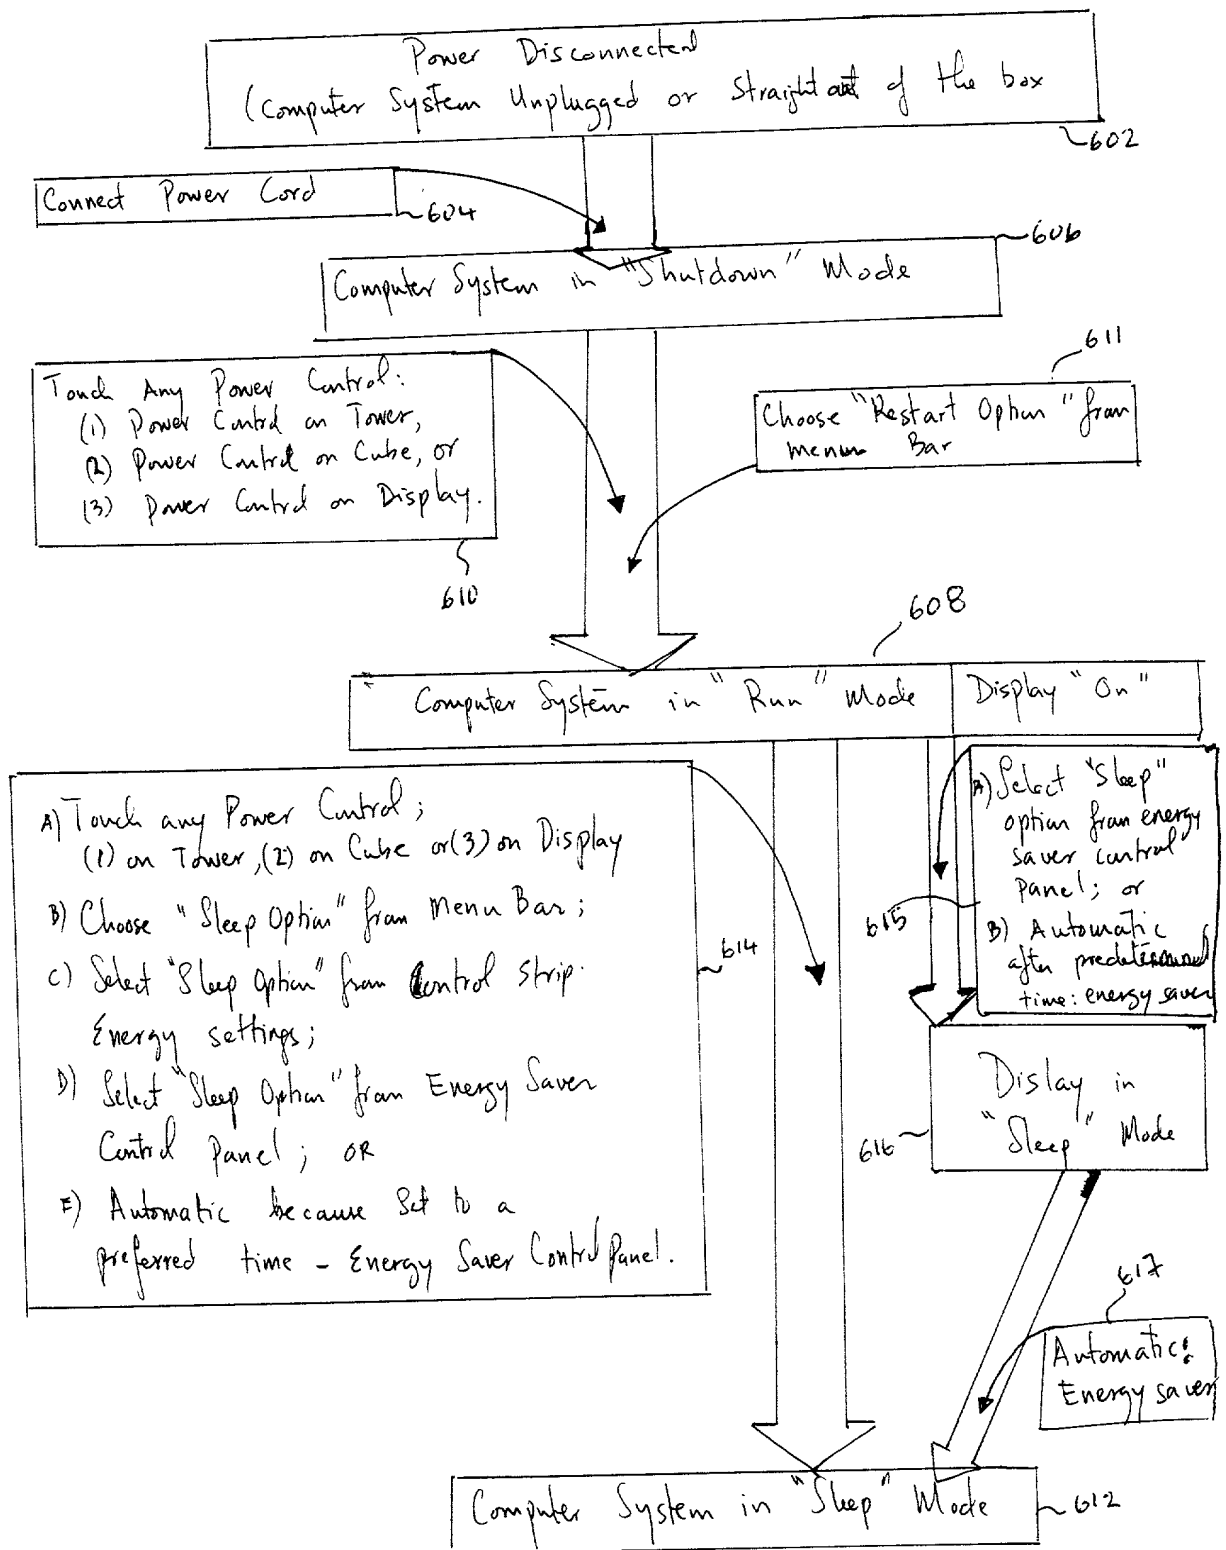 Power Disconnected
(Computer System Unplugged or Straight out of the box
602
Connect Power Cord
604
606
Computer System in "Shutdown" Mode
611
Touch Any Power Control:
(1) Power Control on Tower,
(2) Power Control on Cube, or
(3) Power Control on Display.
610
Choose "Restart Option" from
menu Bar
608
Computer System in "Run" Mode
Display "On"
A) Touch any Power Control;
(1) on Tower, (2) on Cube or (3) on Display
B) Choose "Sleep Option" from Menu Bar;
C) Select "Sleep Option" from Control Strip
Energy settings;
D) Select "Sleep Option" from Energy Saver
Control Panel; OR
E) Automatic because Set to a
preferred time - Energy Saver Control Panel.
614
A) Select "Sleep"
option from energy
saver control
panel; or
B) Automatic
after predetermined
time: energy saver
615
Dislay in
"Sleep" Mode
616
617
Automatic:
Energy saver
Computer System in "Sleep" Mode
612